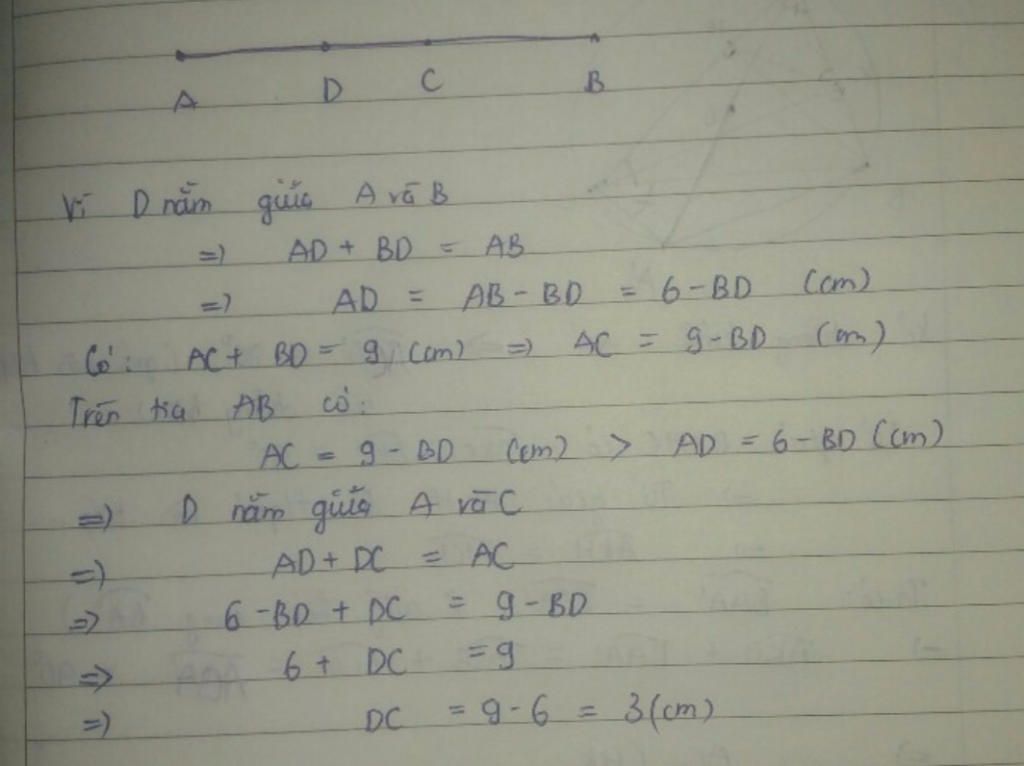 A D C B
Vì D nằm giữa A và B
=) AD + BD = AB
=) AD = AB - BD = 6 - BD (cm)
Có: AC + BD = 9 (cm) =) AC = 9 - BD (cm)
Trên tia AB có:
AC = 9 - BD (cm) > AD = 6 - BD (cm)
=) D nằm giữa A và C
=) AD + DC = AC
=) 6 - BD + DC = 9 - BD
=) 6 + DC = 9
=) DC = 9 - 6 = 3 (cm)